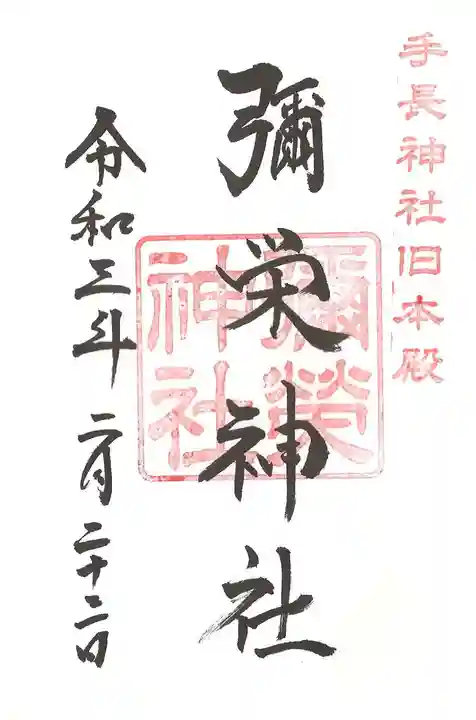 手長神社旧本殿
彌栄神社
彌榮神社
令和三年二月二十三日